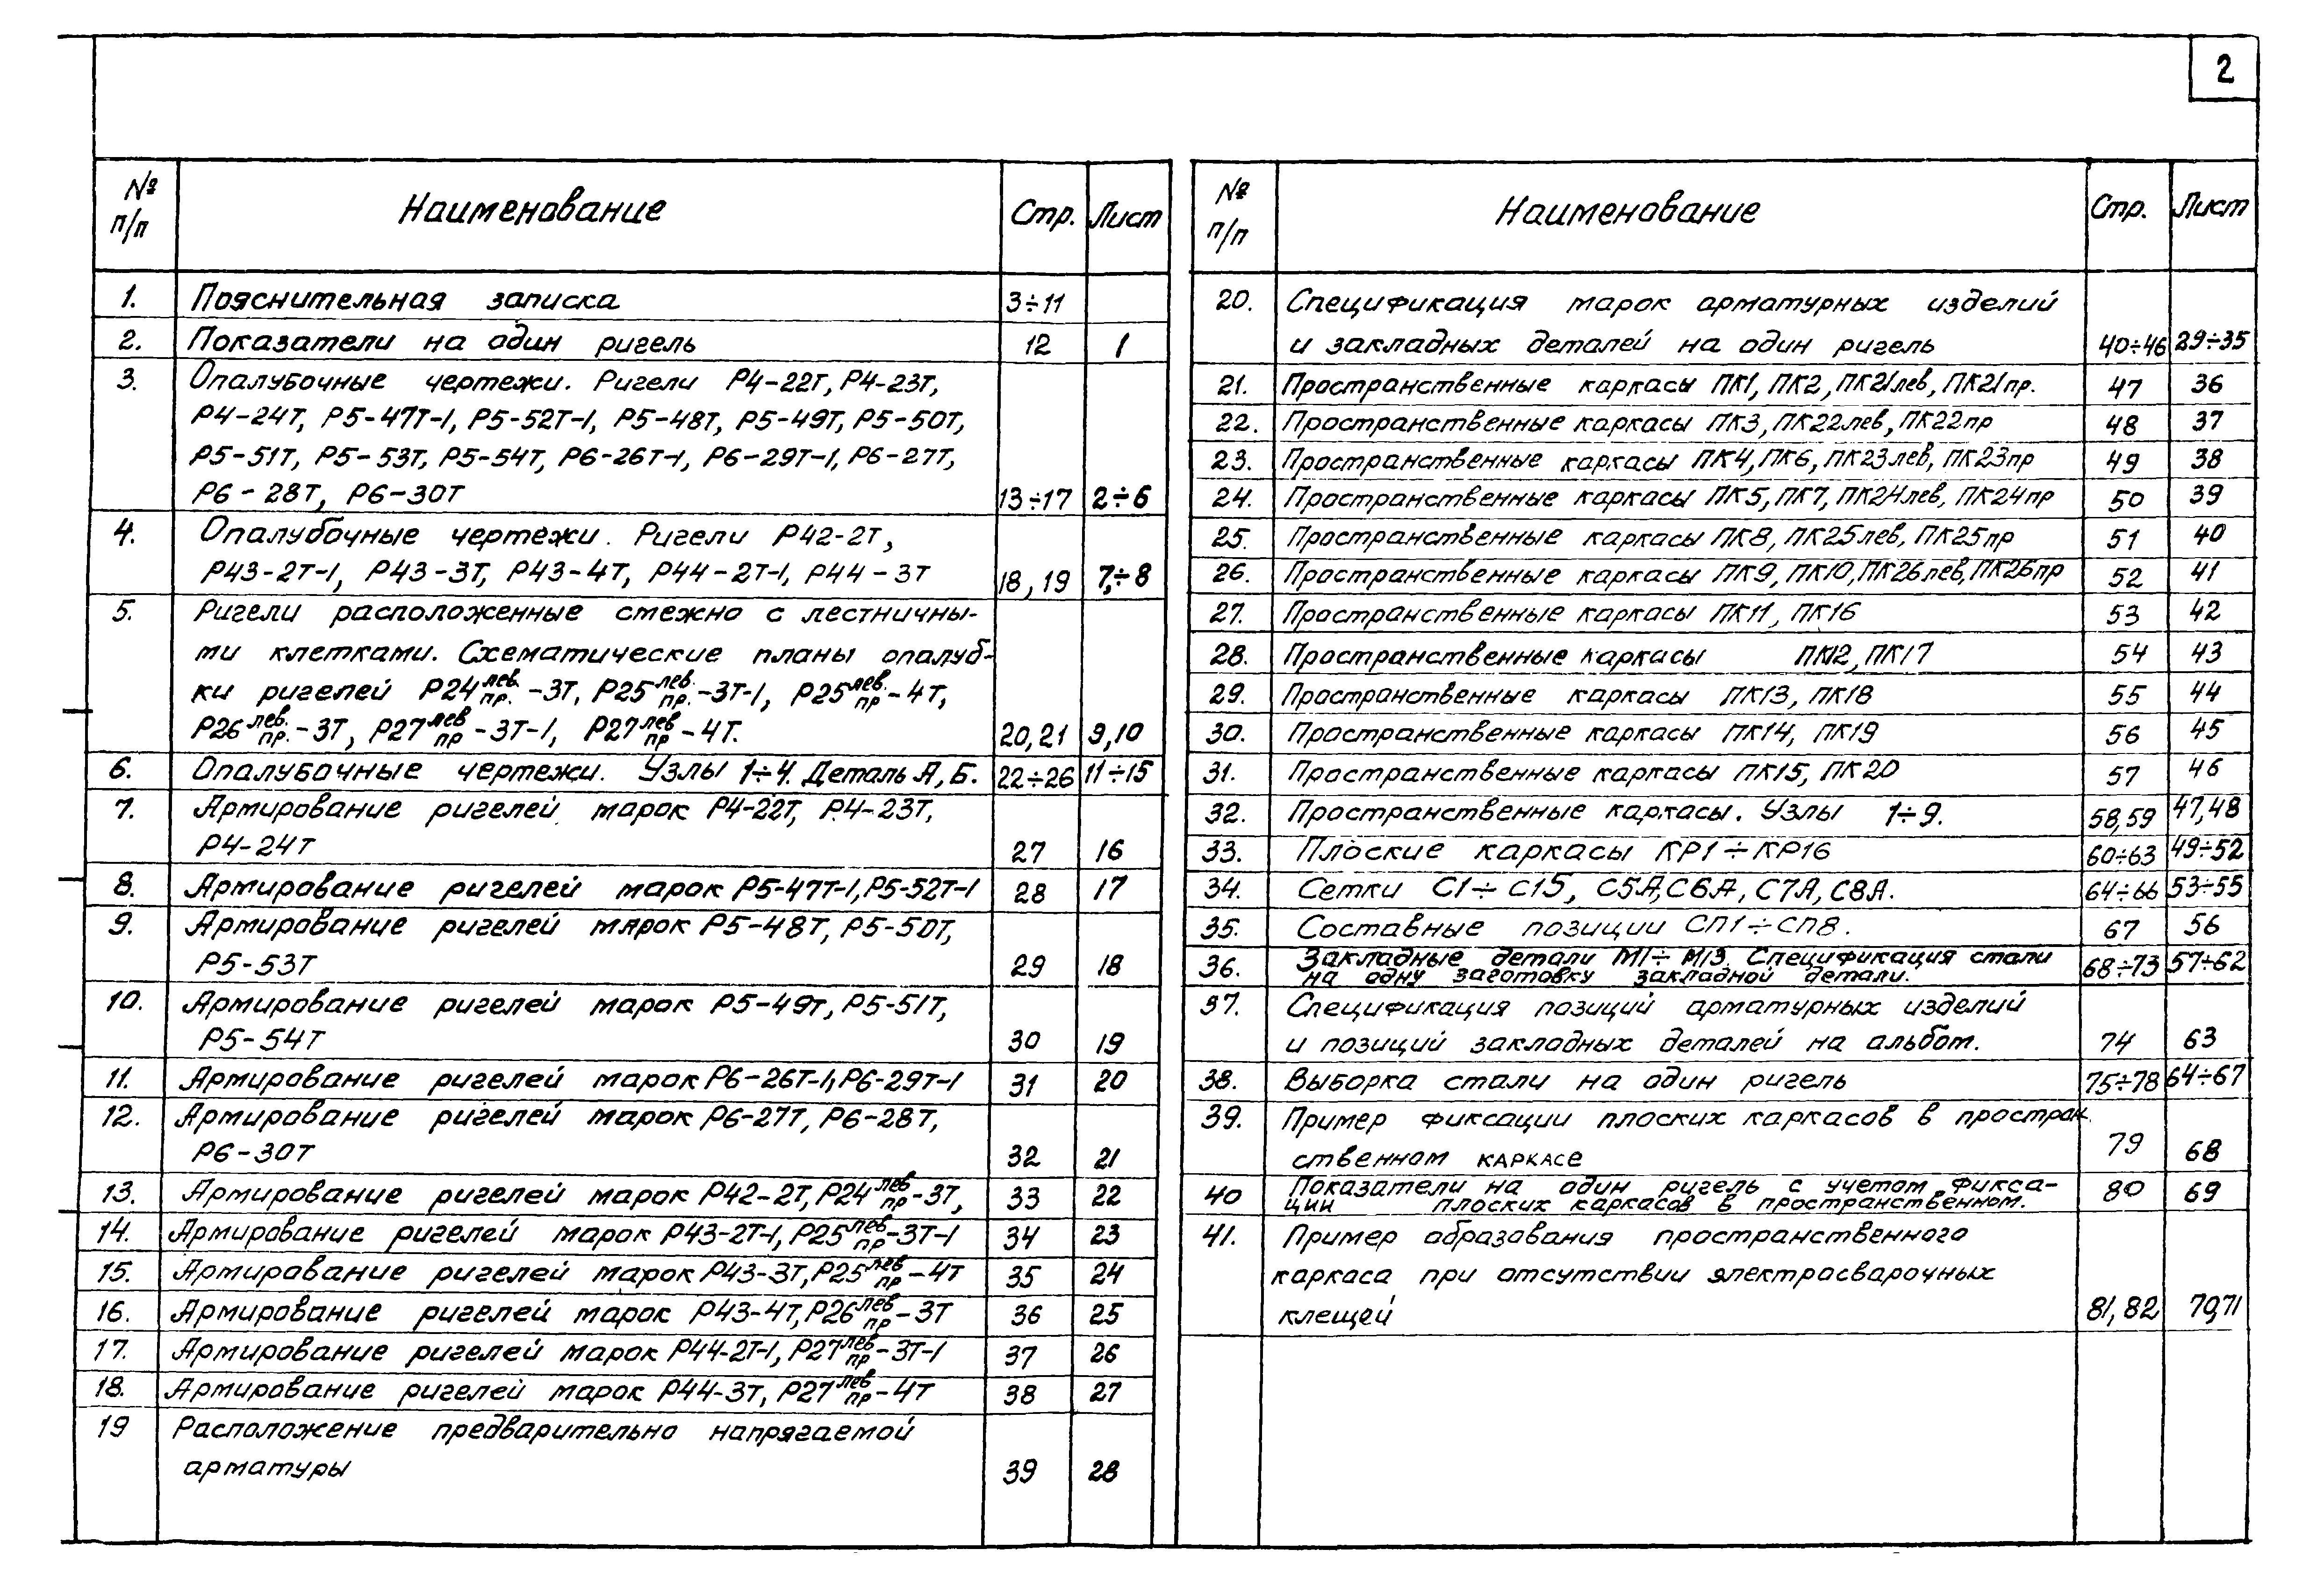 2
№ п/п Наименование Стр. Лист
1. Пояснительная записка 3÷11
2. Показатели на один ригель 12 1
3. Опалубочные чертежи. Ригели Р4-22Т, Р4-23Т,
Р4-24Т, Р5-47Т-1, Р5-52Т-1, Р5-48Т, Р5-49Т, Р5-50Т,
Р5-51Т, Р5-53Т, Р5-54Т, Р6-26Т-1, Р6-29Т-1, Р6-27Т,
Р6-28Т, Р6-30Т 13÷17 2÷6
4. Опалубочные чертежи. Ригели Р42-2Т,
Р43-2Т-1, Р43-3Т, Р43-4Т, Р44-2Т-1, Р44-3Т 18, 19 7,÷8
5. Ригели расположенные стежно с лестничны-
ми клетками. Схематические планы опалуб-
ки ригелей Р24 лев. пр. -3Т, Р25 лев. пр. -3Т-1, Р25 лев. пр -4Т,
Р26 лев. пр. -3Т, Р27 лев пр -3Т-1, Р27 лев пр -4Т. 20,21 9,10
6. Опалубочные чертежи. Узлы 1÷4. Деталь А, Б. 22÷26 11÷15
7. Армирование ригелей марок Р4-22Т, Р4-23Т,
Р4-24Т 27 16
8. Армирование ригелей марок Р5-47Т-1, Р5-52Т-1 28 17
9. Армирование ригелей мярок Р5-48Т, Р5-50Т,
Р5-53Т 29 18
10. Армирование ригелей марок Р5-49Т, Р5-51Т,
Р5-54Т 30 19
11. Армирование ригелей марок Р6-26Т-1, Р6-29Т-1 31 20
12. Армирование ригелей марок Р6-27Т, Р6-28Т,
Р6-30Т 32 21
13. Армирование ригелей марок Р42-2Т, Р24 лев пр -3Т, 33 22
14. Армирование ригелей марок Р43-2Т-1, Р25 лев пр -3Т-1 34 23
15. Армирование ригелей марок Р43-3Т, Р25 лев пр -4Т 35 24
16. Армирование ригелей марок Р43-4Т, Р26 лев пр -3Т 36 25
17. Армирование ригелей марок Р44-2Т-1, Р27 лев пр -3Т-1 37 26
18. Армирование ригелей марок Р44-3Т, Р27 лев пр -4Т 38 27
19 Расположение предварительно напрягаемой
арматуры 39 28
№ п/п Наименование Стр. Лист
20. Спецификация марок арматурных изделий
и закладных деталей на один ригель 40÷46 29÷35
21. Пространственные каркасы ПК1, ПК2, ПК21лев, ПК21пр. 47 36
22. Пространственные каркасы ПК3, ПК22лев, ПК22пр 48 37
23. Пространственные каркасы ПК4, ПК6, ПК23лев, ПК23пр 49 38
24. Пространственные каркасы ПК5, ПК7, ПК24лев, ПК24пр 50 39
25. Пространственные каркасы ПК8, ПК25лев, ПК25пр 51 40
26. Пространственные каркасы ПК9, ПК10, ПК26лев, ПК26пр 52 41
27. Пространственные каркасы ПК11, ПК16 53 42
28. Пространственные каркасы ПК12, ПК17 54 43
29. Пространственные каркасы ПК13, ПК18 55 44
30. Пространственные каркасы ПК14, ПК19 56 45
31. Пространственные каркасы ПК15, ПК20 57 46
32. Пространственные каркасы. Узлы 1÷9. 58,59 47,48
33. Плоские каркасы КР1÷КР16 60÷63 49÷52
34. Сетки С1÷С15, С5А, С6А, С7А, С8А. 64÷66 53÷55
35. Составные позиции СП1÷СП8. 67 56
36. Закладные детали М1÷М13. Спецификация стали
на одну заготовку закладной детали. 68÷73 57÷62
37. Спецификация позиций арматурных изделий
и позиций закладных деталей на альбом. 74 63
38. Выборка стали на один ригель 75÷78 64÷67
39. Пример фиксации плоских каркасов в простран.
ственном каркасе 79 68
40 Показатели на один ригель с учетом фикса-
ции плоских каркасов в пространственном. 80 69
41. Пример образования пространственного
каркаса при отсутствии электросварочных
клещей 81, 82 70,71